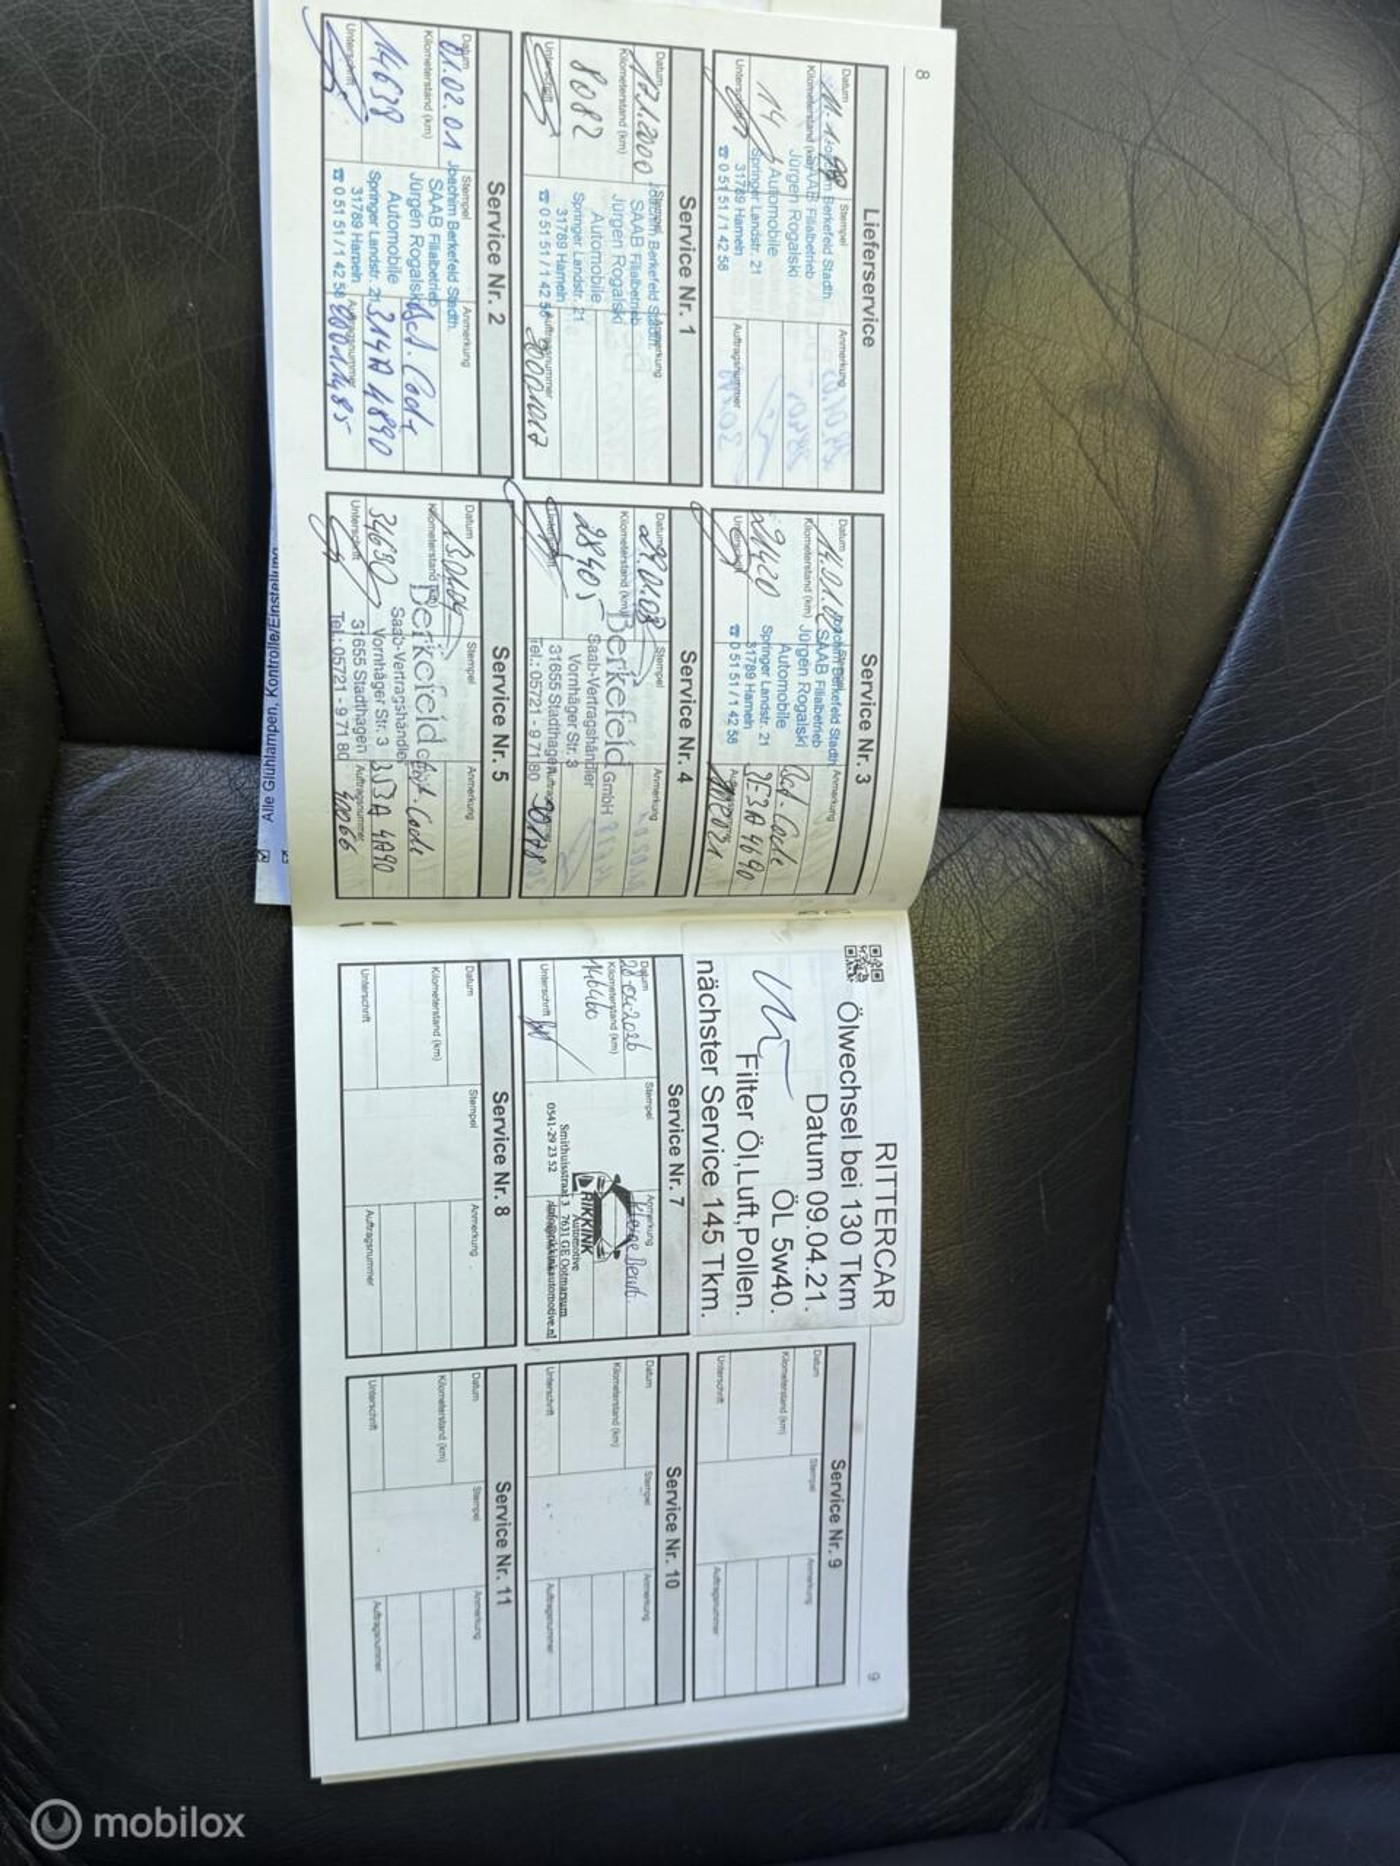 8
Lieferservice
Datum
Stempel
Anmerkung
Kilometerstand (km)
Joachim Berkefeld Stadth.
SAAB Filialbetrieb
Jürgen Rogalski
Automobile
Springer Landstr. 21
31789 Hameln
☎ 0 51 51 / 1 42 58
14
Unterschrift
Auftragsnummer
Service Nr. 1
Datum
Stempel
Anmerkung
17.1.2000
Kilometerstand (km)
8082
Joachim Berkefeld Stadth.
SAAB Filialbetrieb
Jürgen Rogalski
Automobile
Springer Landstr. 21
31789 Hameln
☎ 0 51 51 / 1 42 58
Unterschrift
Auftragsnummer
Service Nr. 2
Datum
Stempel
Anmerkung
01.02.01
Kilometerstand (km)
14638
Joachim Berkefeld Stadth.
SAAB Filialbetrieb
Jürgen Rogalski
Automobile
Springer Landstr. 21
31789 Hameln
☎ 0 51 51 / 1 42 58
Rad. Code
314A 4890
Unterschrift
Auftragsnummer
Service Nr. 3
Datum
Stempel
Anmerkung
Kilometerstand (km)
21420
Joachim Berkefeld Stadth.
SAAB Filialbetrieb
Jürgen Rogalski
Automobile
Springer Landstr. 21
31789 Hameln
☎ 0 51 51 / 1 42 58
Rad. Code
3E3A4690
Unterschrift
Service Nr. 4
Datum
Stempel
Anmerkung
29.01.03
Kilometerstand (km)
28405
Berkefeld GmbH
Saab-Vertragshändler
Vornhäger Str. 3
31655 Stadthagen
Tel.: 05721 - 9 71 80
Unterschrift
Auftragsnummer
Service Nr. 5
Datum
Stempel
Anmerkung
13.01.04
Kilometerstand (km)
34690
Berkefeld
Saab-Vertragshändler
Vornhäger Str. 3
31655 Stadthagen
Tel.: 05721 - 9 71 80
Rad. Code
353A 4A90
Unterschrift
Auftragsnummer
40066
Alle Glühlampen, Kontrolle/Einstellung
RITTERCAR
Ölwechsel bei 130 Tkm
Datum 09.04.21.
ÖL 5w40.
Filter Öl,Luft,Pollen.
nächster Service 145 Tkm.
Service Nr. 7
Datum
Stempel
Anmerkung
28-04-2026
Kilometerstand (km)
146460
Unterschrift
RIKKINK
Automotive
Smithuisstraat 3 7631 GE Ootmarsum
0541-29 23 52 info@rikkinkautomotive.nl
Service Nr. 8
Datum
Stempel
Anmerkung
Kilometerstand (km)
Unterschrift
Auftragsnummer
9
Service Nr. 9
Datum
Stempel
Anmerkung
Kilometerstand (km)
Unterschrift
Auftragsnummer
Service Nr. 10
Datum
Stempel
Anmerkung
Kilometerstand (km)
Unterschrift
Auftragsnummer
Service Nr. 11
Datum
Stempel
Anmerkung
Kilometerstand (km)
Unterschrift
Auftragsnummer
mobilox